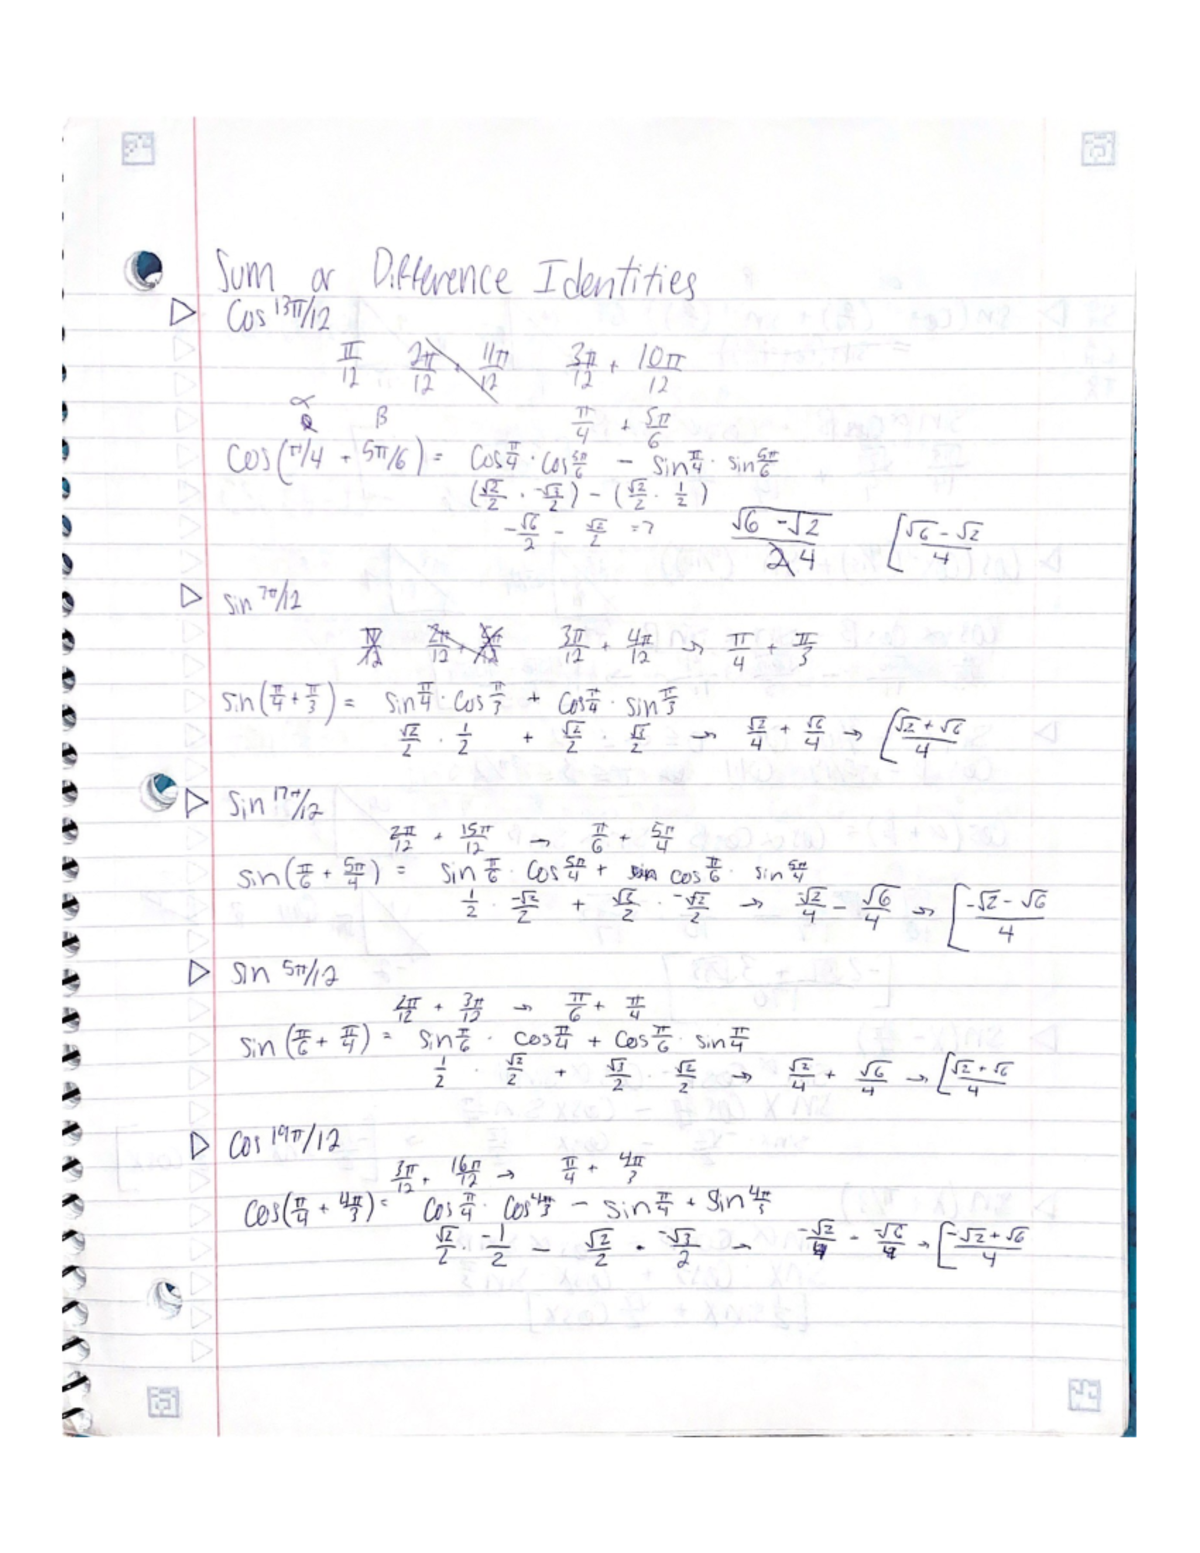 Sum or Difference Identities
▷ Cos 13π/12
π/12 2π/12 · 11π/12 3π/12 + 10π/12
α β π/4 + 5π/6
Cos(π/4 + 5π/6) = Cos π/4 · Cos 5π/6 − Sin π/4 · Sin 5π/6
(√2/2 · -√3/2) − (√2/2 · 1/2)
-√6/2 − √2/2 = ? √6 − √2 / 4 [√6 − √2 / 4
▷ Sin 7π/12
π/12 2π/12 + 5π/12 3π/12 + 4π/12 → π/4 + π/3
Sin(π/4 + π/3) = Sin π/4 · Cos π/3 + Cos π/4 · Sin π/3
√2/2 · 1/2 + √2/2 · √3/2 → √2/4 + √6/4 → [√2 + √6 / 4
▷ Sin 17π/12
2π/12 + 15π/12 → π/6 + 5π/4
Sin(π/6 + 5π/4) = Sin π/6 · Cos 5π/4 + cos π/6 · sin 5π/4
1/2 · -√2/2 + √3/2 · -√2/2 → -√2/4 − √6/4 → [-√2 − √6 / 4
▷ Sin 5π/12
2π/12 + 3π/12 → π/6 + π/4
Sin(π/6 + π/4) = Sin π/6 · cos π/4 + Cos π/6 · sin π/4
1/2 · √2/2 + √3/2 · √2/2 → √2/4 + √6/4 → [√2 + √6 / 4
▷ Cos 19π/12
3π/12 + 16π/12 → π/4 + 4π/3
Cos(π/4 + 4π/3) = Cos π/4 · Cos 4π/3 − Sin π/4 + Sin 4π/3
√2/2 · -1/2 − √2/2 · -√3/2 → -√2/4 − -√6/4 → [-√2 + √6 / 4